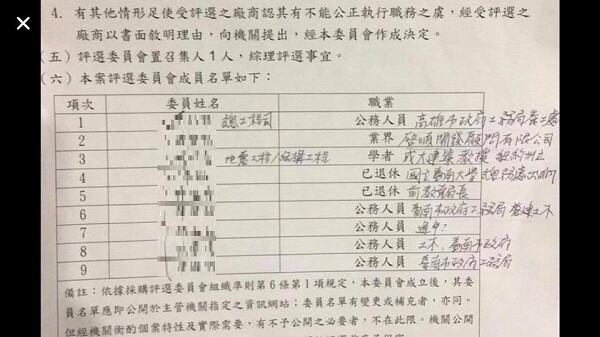 4. 有其他情形足使受評選之廠商認其有不能公正執行職務之虞，經受評選之
廠商以書面敘明理由，向機關提出，經本委員會作成決定。
(五) 評選委員會置召集人1人，綜理評選事宜。
(六) 本案評選委員會成員名單如下：
項次 委員姓名 職業
1 總工程司 公務人員 高雄市政府工務局養工處
2 業界 啓順開發顧問有限公司
3 地震工程/結構工程 學者 成大建築教授 紐約州立
4 已退休 國立臺南大學總務處
5 已退休 前教育局長
6 公務人員 臺南市政府工務局
7 公務人員
8 公務人員 工務 臺南市政府
9 公務人員 臺南市政府工務局
備註：依據採購評選委員會組織準則第6條第1項規定，本委員會成立後，其委
員名單應即公開於主管機關指定之資訊網站；委員名單有變更或補充者，亦同。
但經機關衡酌個案特性及實際需要，有不予公開之必要者，不在此限。機關公開